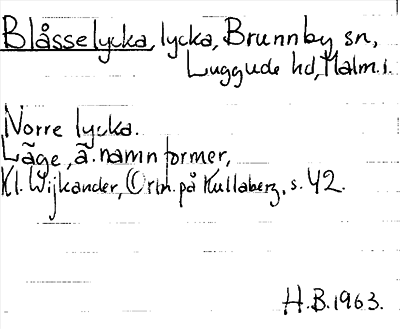 Blåsselycka, lycka, Brunnby sn,
Luggude hd, Malm.l.
Norre lycka.
Läge, ä. namnformer,
Kl. Wijkander, Ortn. på Kullaberg, s. 42.
H.B. 1963.